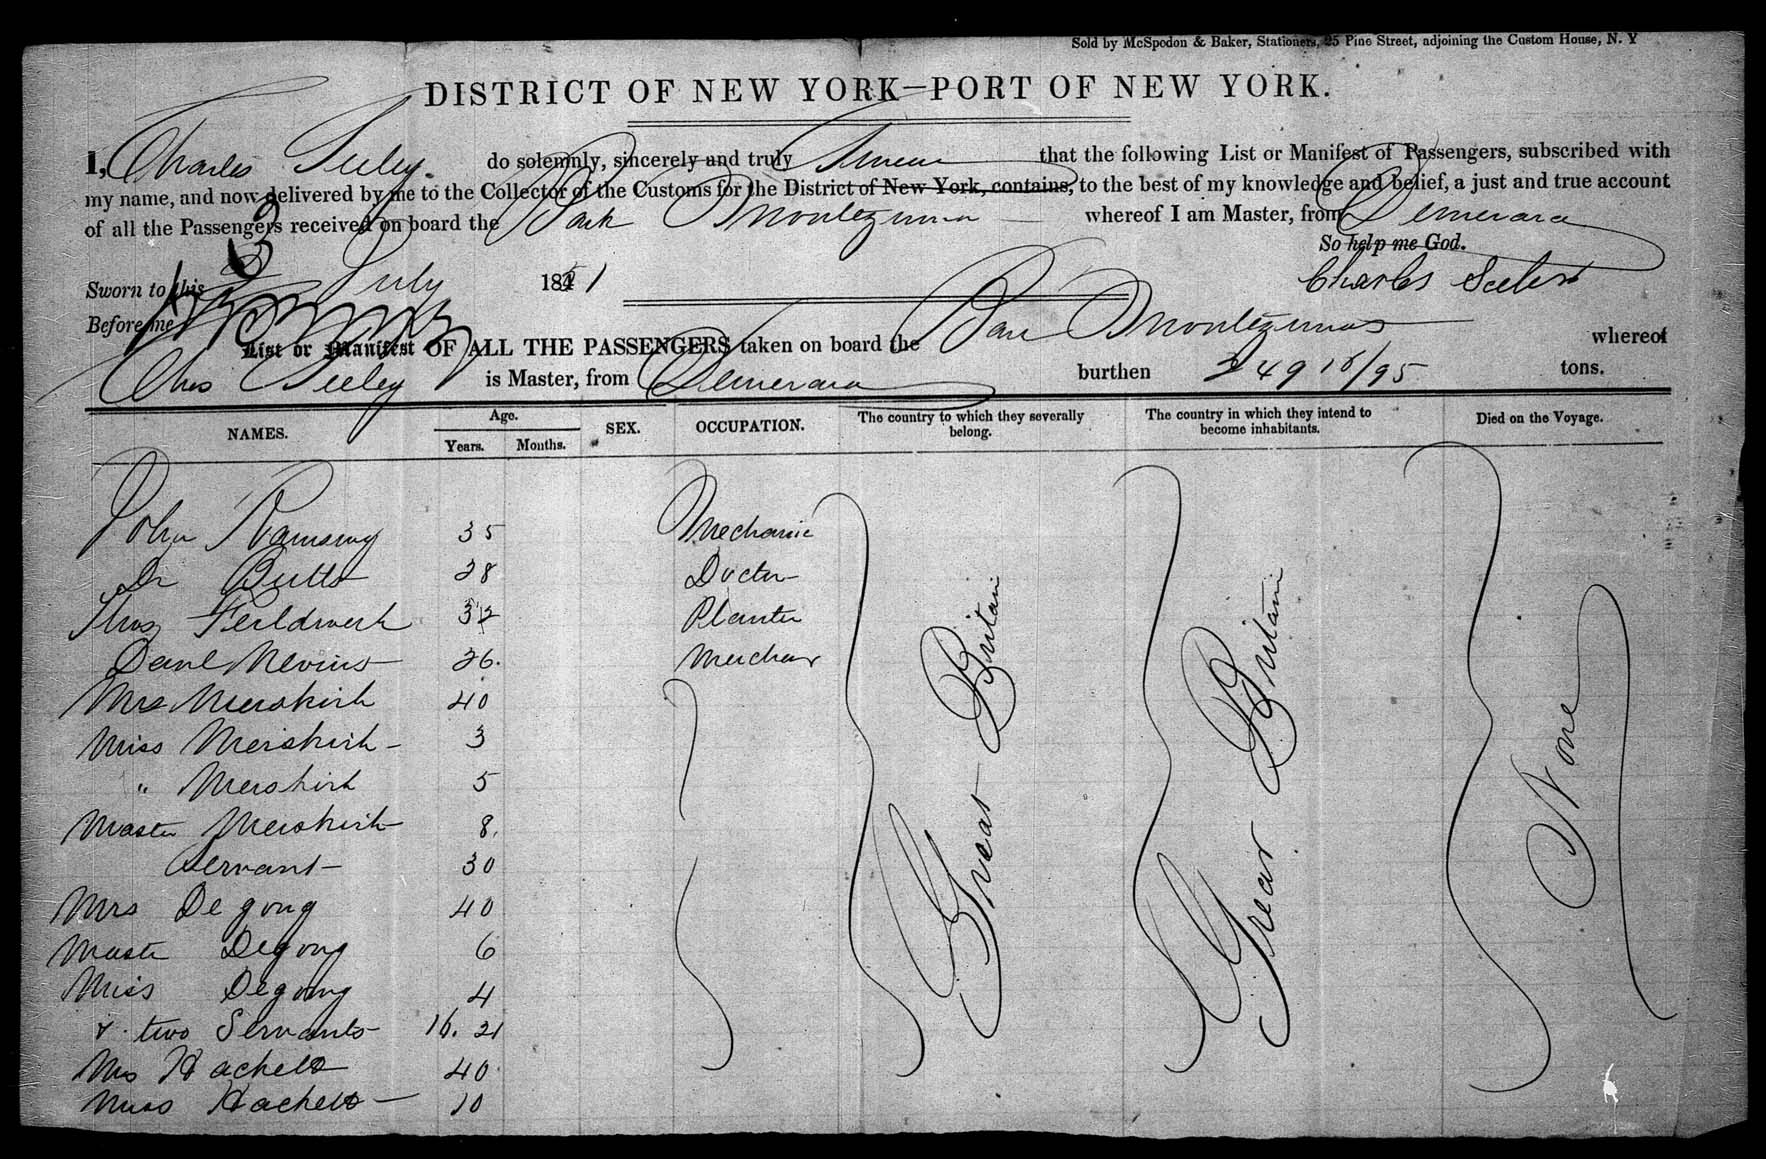 Sold by McSpedon & Baker, Stationers, 25 Pine Street, adjoining the Custom House, N. Y
DISTRICT OF NEW YORK—PORT OF NEW YORK.
I, Charles Seeley. do solemnly, sincerely and truly Swear that the following List or Manifest of Passengers, subscribed with
my name, and now delivered by me to the Collector of the Customs for the District of New York, contains, to the best of my knowledge and belief, a just and true account
of all the Passengers received on board the Bark Montezuma whereof I am Master, from Demerara
So help me God.
Sworn to this 3 July 1851 Charles Seeley
Before me
List or Manifest OF ALL THE PASSENGERS taken on board the Bark Montezuma whereof
Chas Seeley is Master, from Demerara burthen 249 18/95 tons.
NAMES. Age. Years. Months. SEX. OCCUPATION. The country to which they severally belong. The country in which they intend to become inhabitants. Died on the Voyage.
John Ramsay 35 Mechanic
Dr Butts 28 Doctor
Thos 32 Planter
Danl Nevins 26.
Mrs Merskirk 40
Miss Merskirk 3
" Merskirk 5
Master Merskirk 8.
Servant 30
Mrs Degong 40
Master Degong 6
Miss Degong 4
& two Servants 16. 21
Mrs Hackett 40
Miss Hackett 10
Great Britain
Great Britain
None